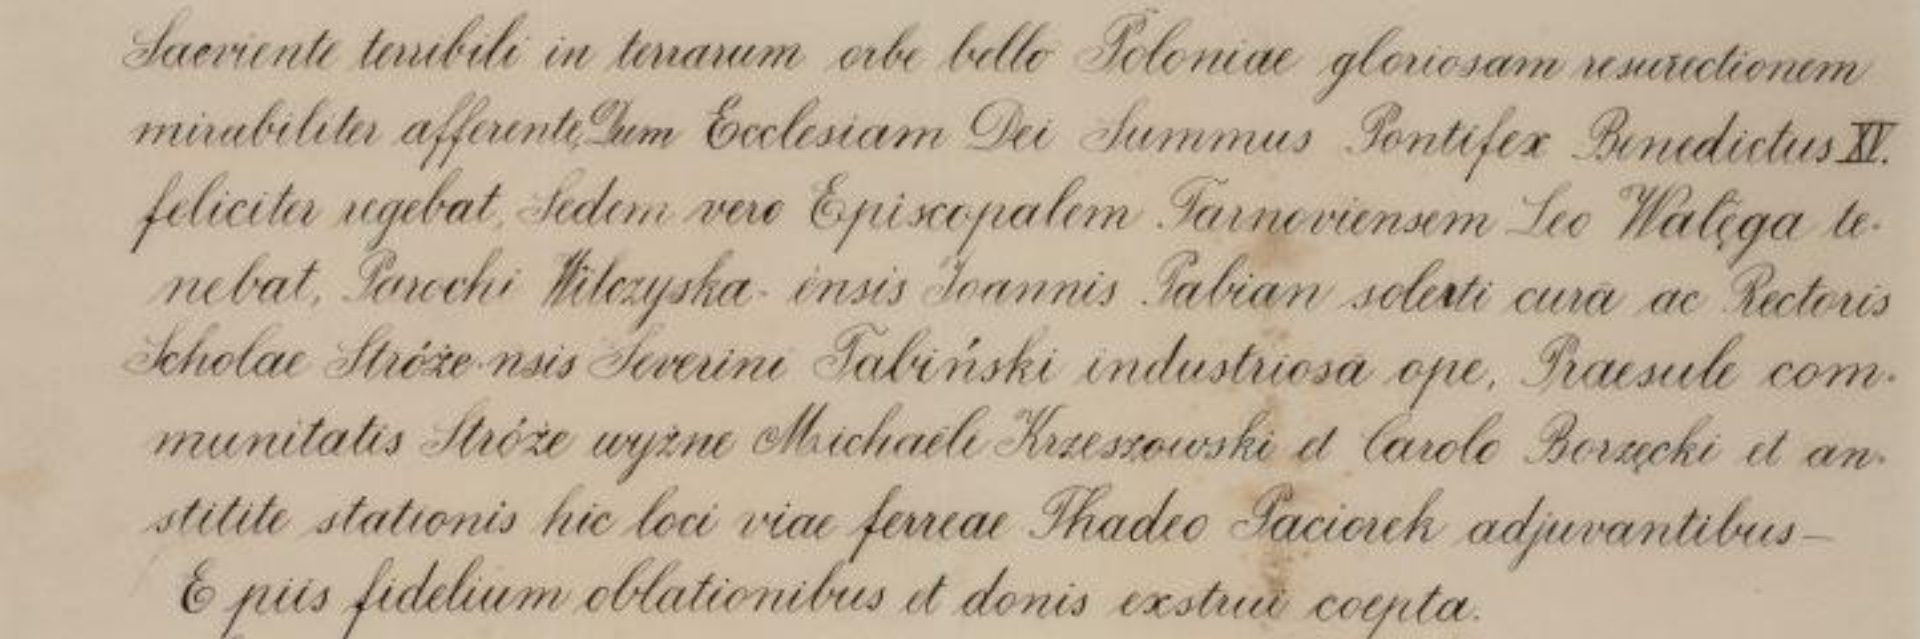 Saeviente terribili in terrarum orbe bello Poloniae gloriosam resurectionem
mirabiliter afferente, Dum Ecclesiam Dei Summus Pontifex Benedictus XV.
feliciter regebat, Sedem vero Episcopalem Tarnoviensem Leo Wałęga te-
nebat, Parochi Wilczyska- ensis Joannis Pabian solerti curā ac Rectoris
Scholae Stróże-nsis Severini Tabiński industriosā ope, Praesule com-
munitatis Stróże wyżne Michaële Krzeszowski et Carolo Borzęcki et an-
stitite stationis hic loci viae ferreae Thadeo Paciorek adjuvantibus—
E piis fidelium oblationibus et donis exstrui coepta.